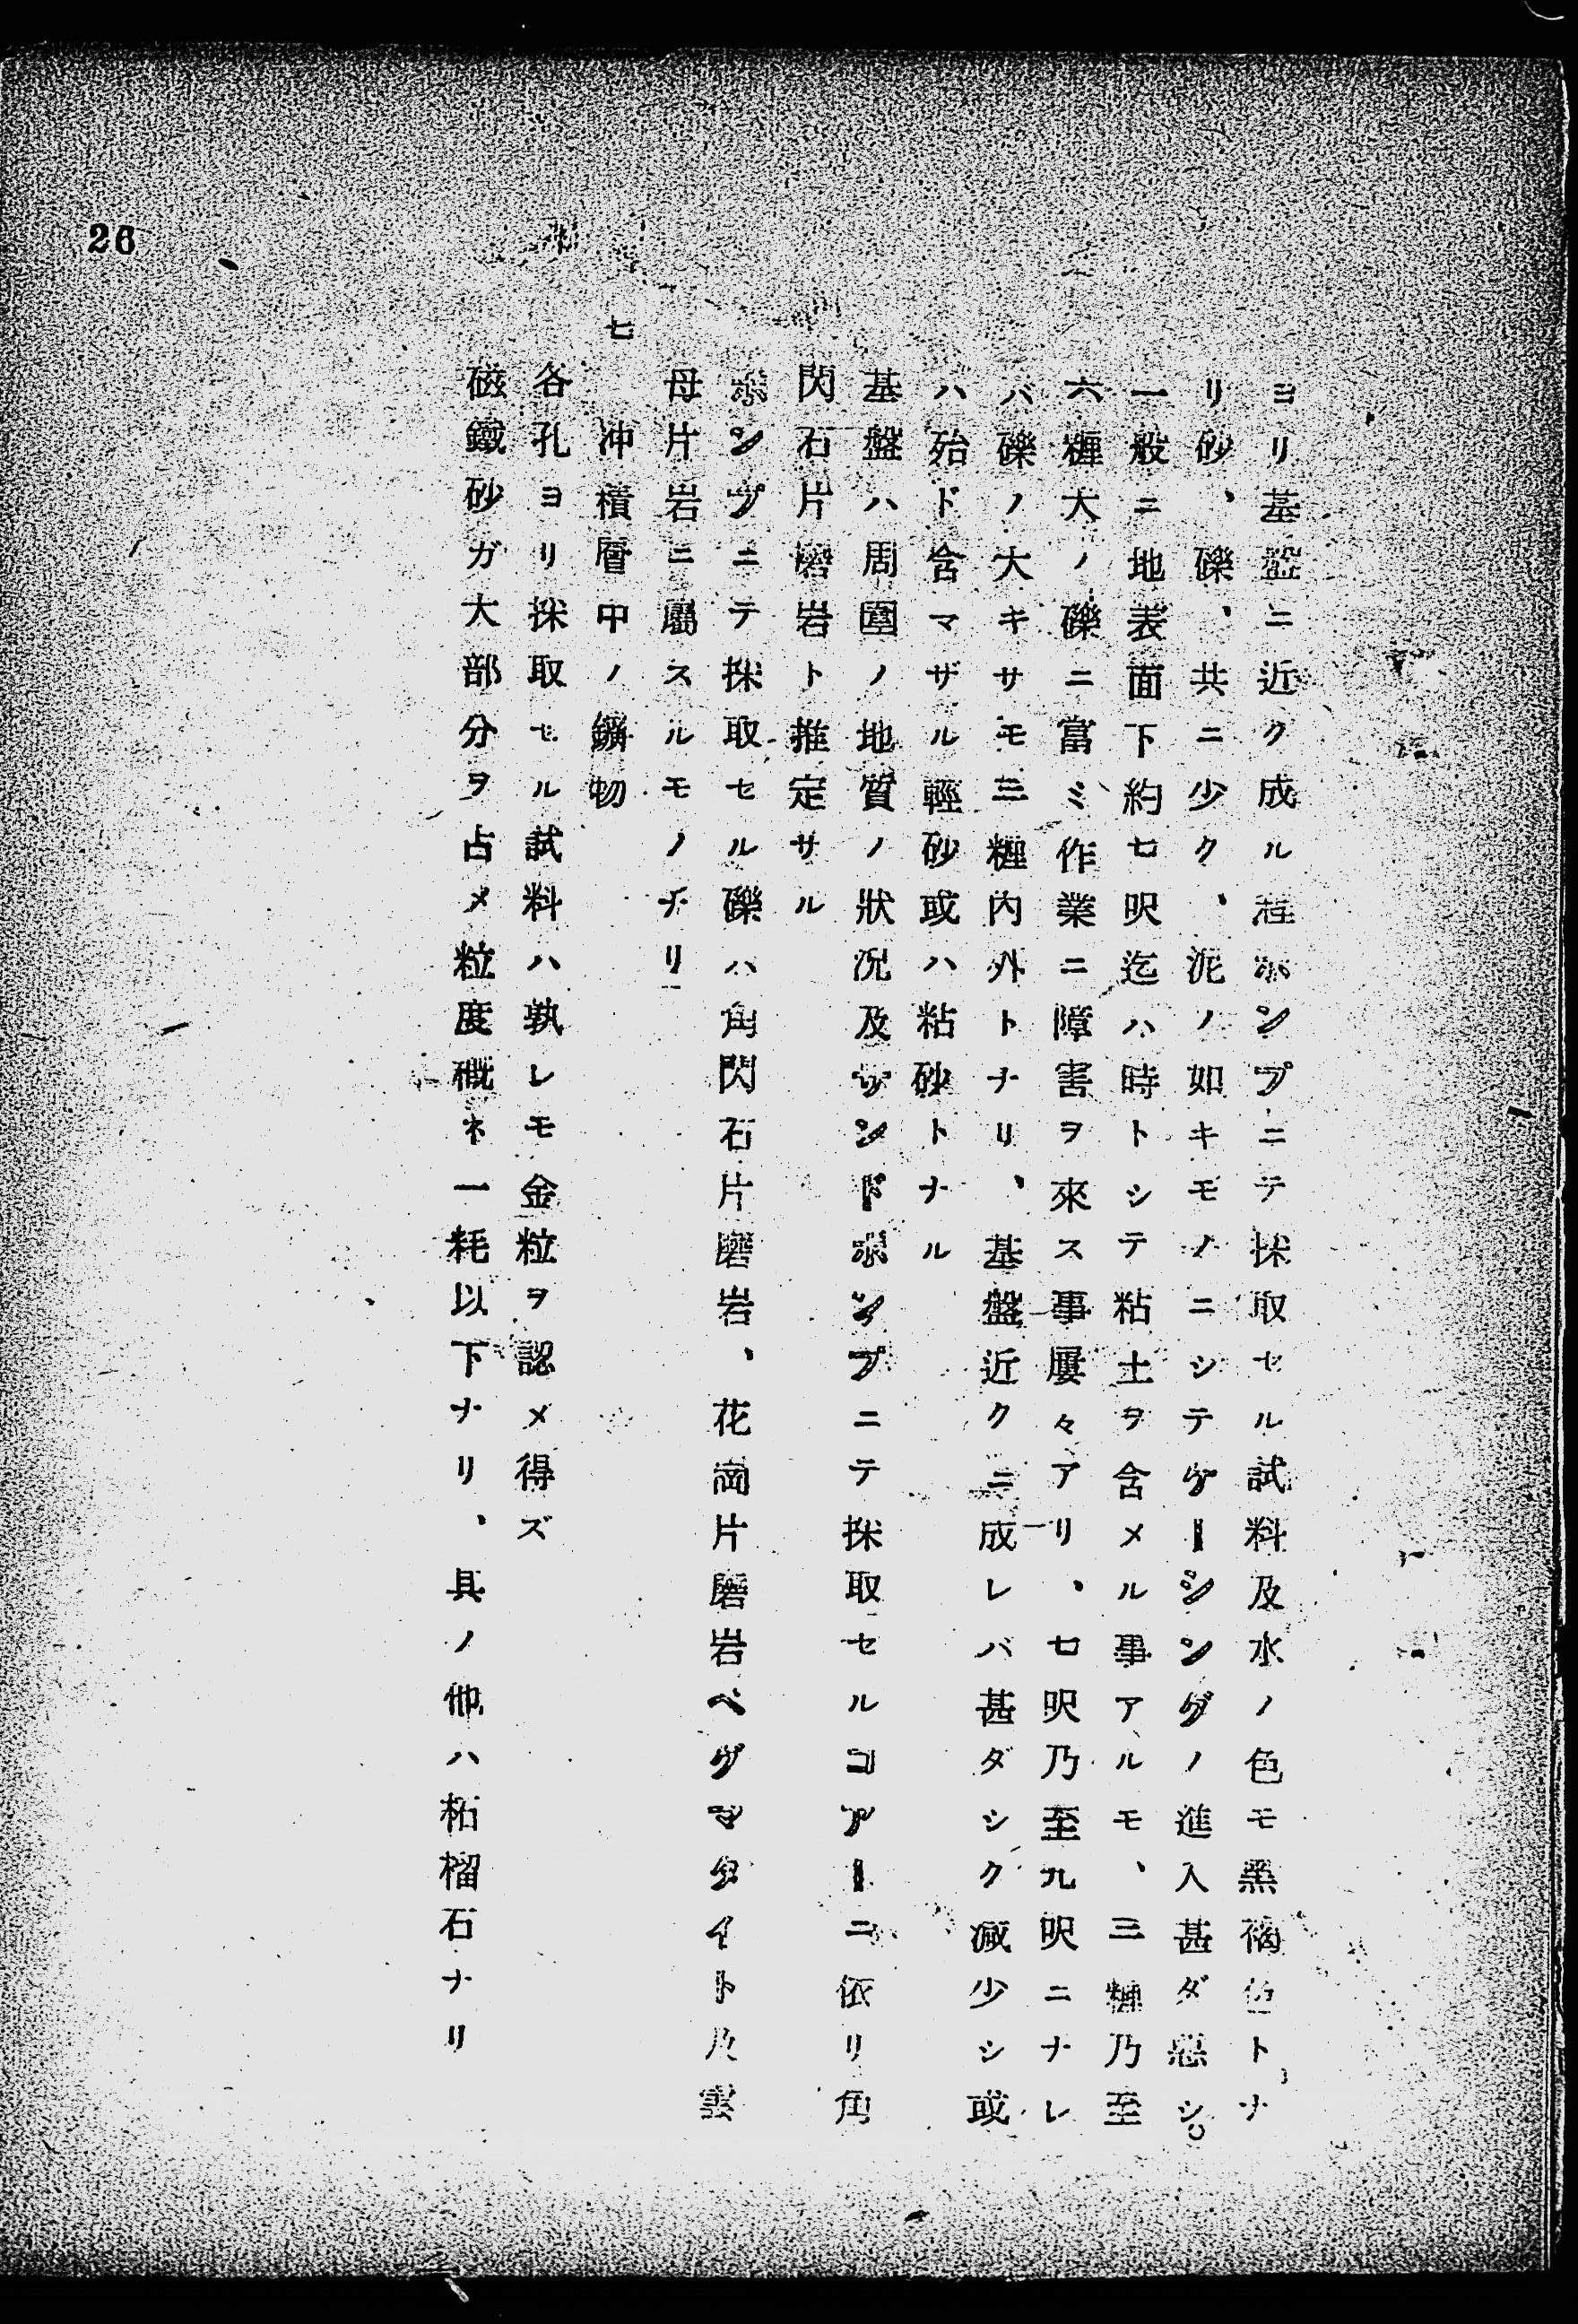 ヨリ基盤ニ近ク成ル程ポンプニテ採取セル試料及水ノ色モ黒褐色トナ
リ砂、礫、共ニ少ク、泥ノ如キモノニシテケーシングノ進入甚ダ惡シ。
一般ニ地表面下約七呎迄ハ時トシテ粘土ヲ含メル事アルモ、三糎乃至
六糎大ノ礫ニ富ミ作業ニ障害ヲ來ス事屢々アリ、七呎乃至九呎ニナレ
バ礫ノ大キサモ三糎内外トナリ、基盤近クニ成レバ甚ダシク減少シ或
ハ殆ド含マザル輕砂或ハ粘砂トナル
基盤ハ周圍ノ地質ノ狀況及サンドポンプニテ採取セルコアーニ依リ角
閃石片磨岩ト推定サル
ポンプニテ採取セル礫ハ角閃石片磨岩、花崗片磨岩ペグマタイト及雲
母片岩ニ屬スルモノナリ
七 沖積層中ノ鑛物
各孔ヨリ採取セル試料ハ孰レモ金粒ヲ認メ得ズ
磁鐵砂ガ大部分ヲ占メ粒度槪ネ一粍以下ナリ、具ノ他ハ柘榴石ナリ
26